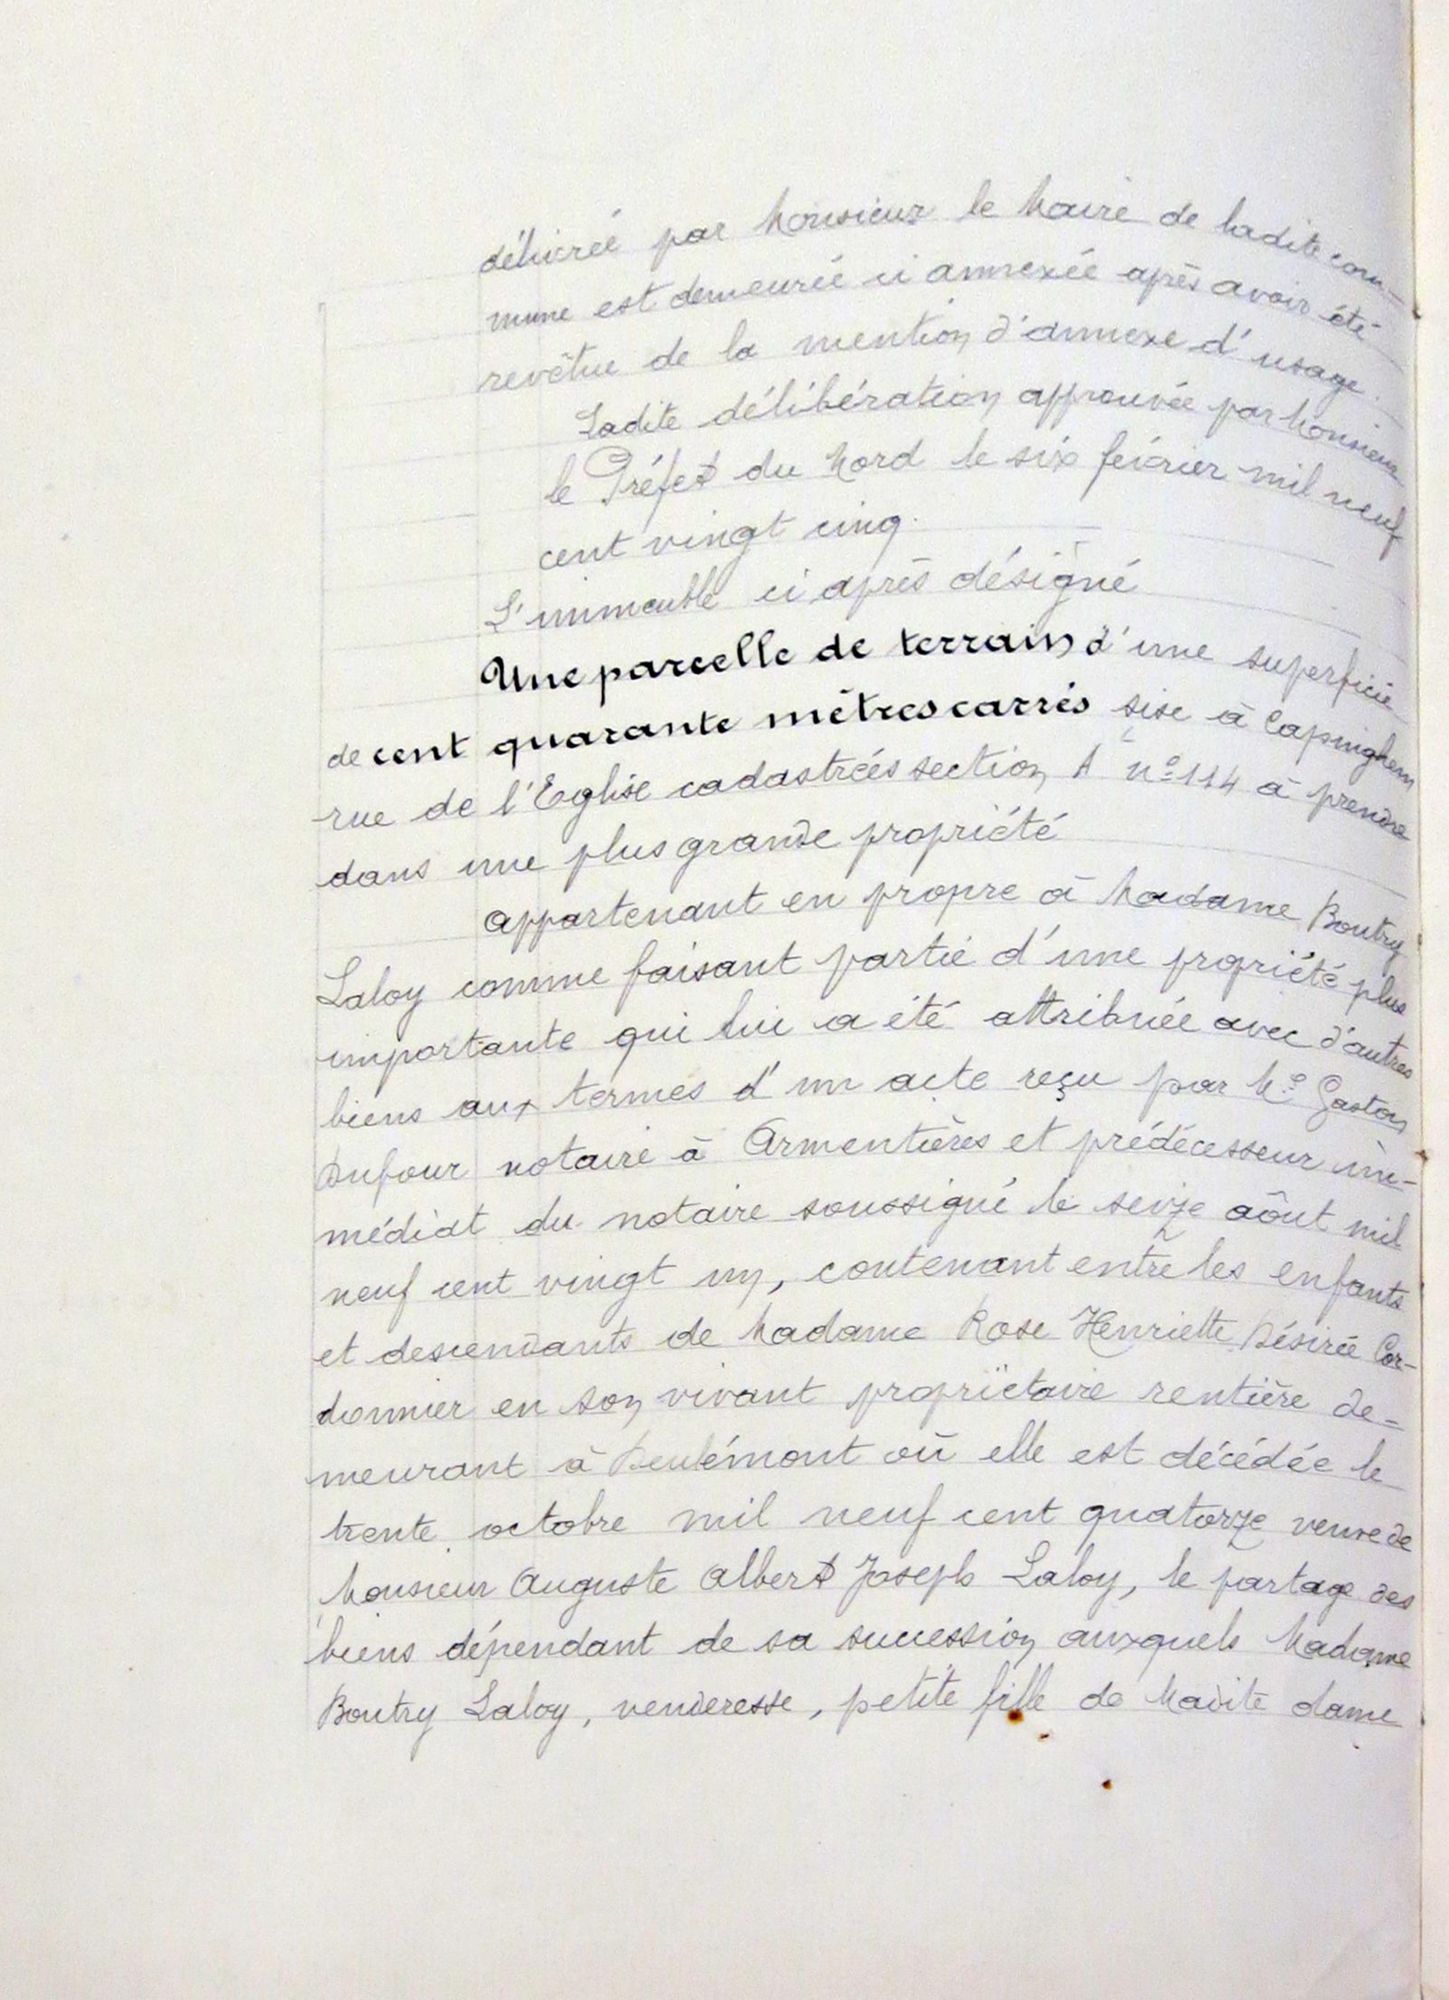 délivrée par Monsieur le Maire de ladite com-
mune est demeurée ci annexée après avoir été
revêtue de la mention d'annexe d'usage.
Ladite délibération approuvée par Monsieur
le Préfet du Nord le six février mil neuf
cent vingt cinq.
L'immeuble ci après désigné
Une parcelle de terrain d'une superficie
de cent quarante mètres carrés sise à Capinghem
rue de l'Eglise cadastrées section A nº 114 à prendre
dans une plus grande propriété
appartenant en propre à Madame Boutry
Laloy comme faisant partie d'une propriété plus
importante qui lui a été attribuée avec d'autres
biens aux termes d'un acte reçu par Me Gaston
Dufour notaire à Armentières et prédécesseur im-
médiat du notaire soussigné le seize août mil
neuf cent vingt un, contenant entre les enfants
et descendants de Madame Rose Henriette Désirée Cor-
donnier en son vivant propriétaire rentière de-
meurant à Deulémont où elle est décédée le
trente octobre mil neuf cent quatorze veuve de
Monsieur Auguste Albert Joseph Laloy, le partage des
biens dépendant de sa succession auxquels Madame
Boutry Laloy, venderesse, petite fille de ladite dame